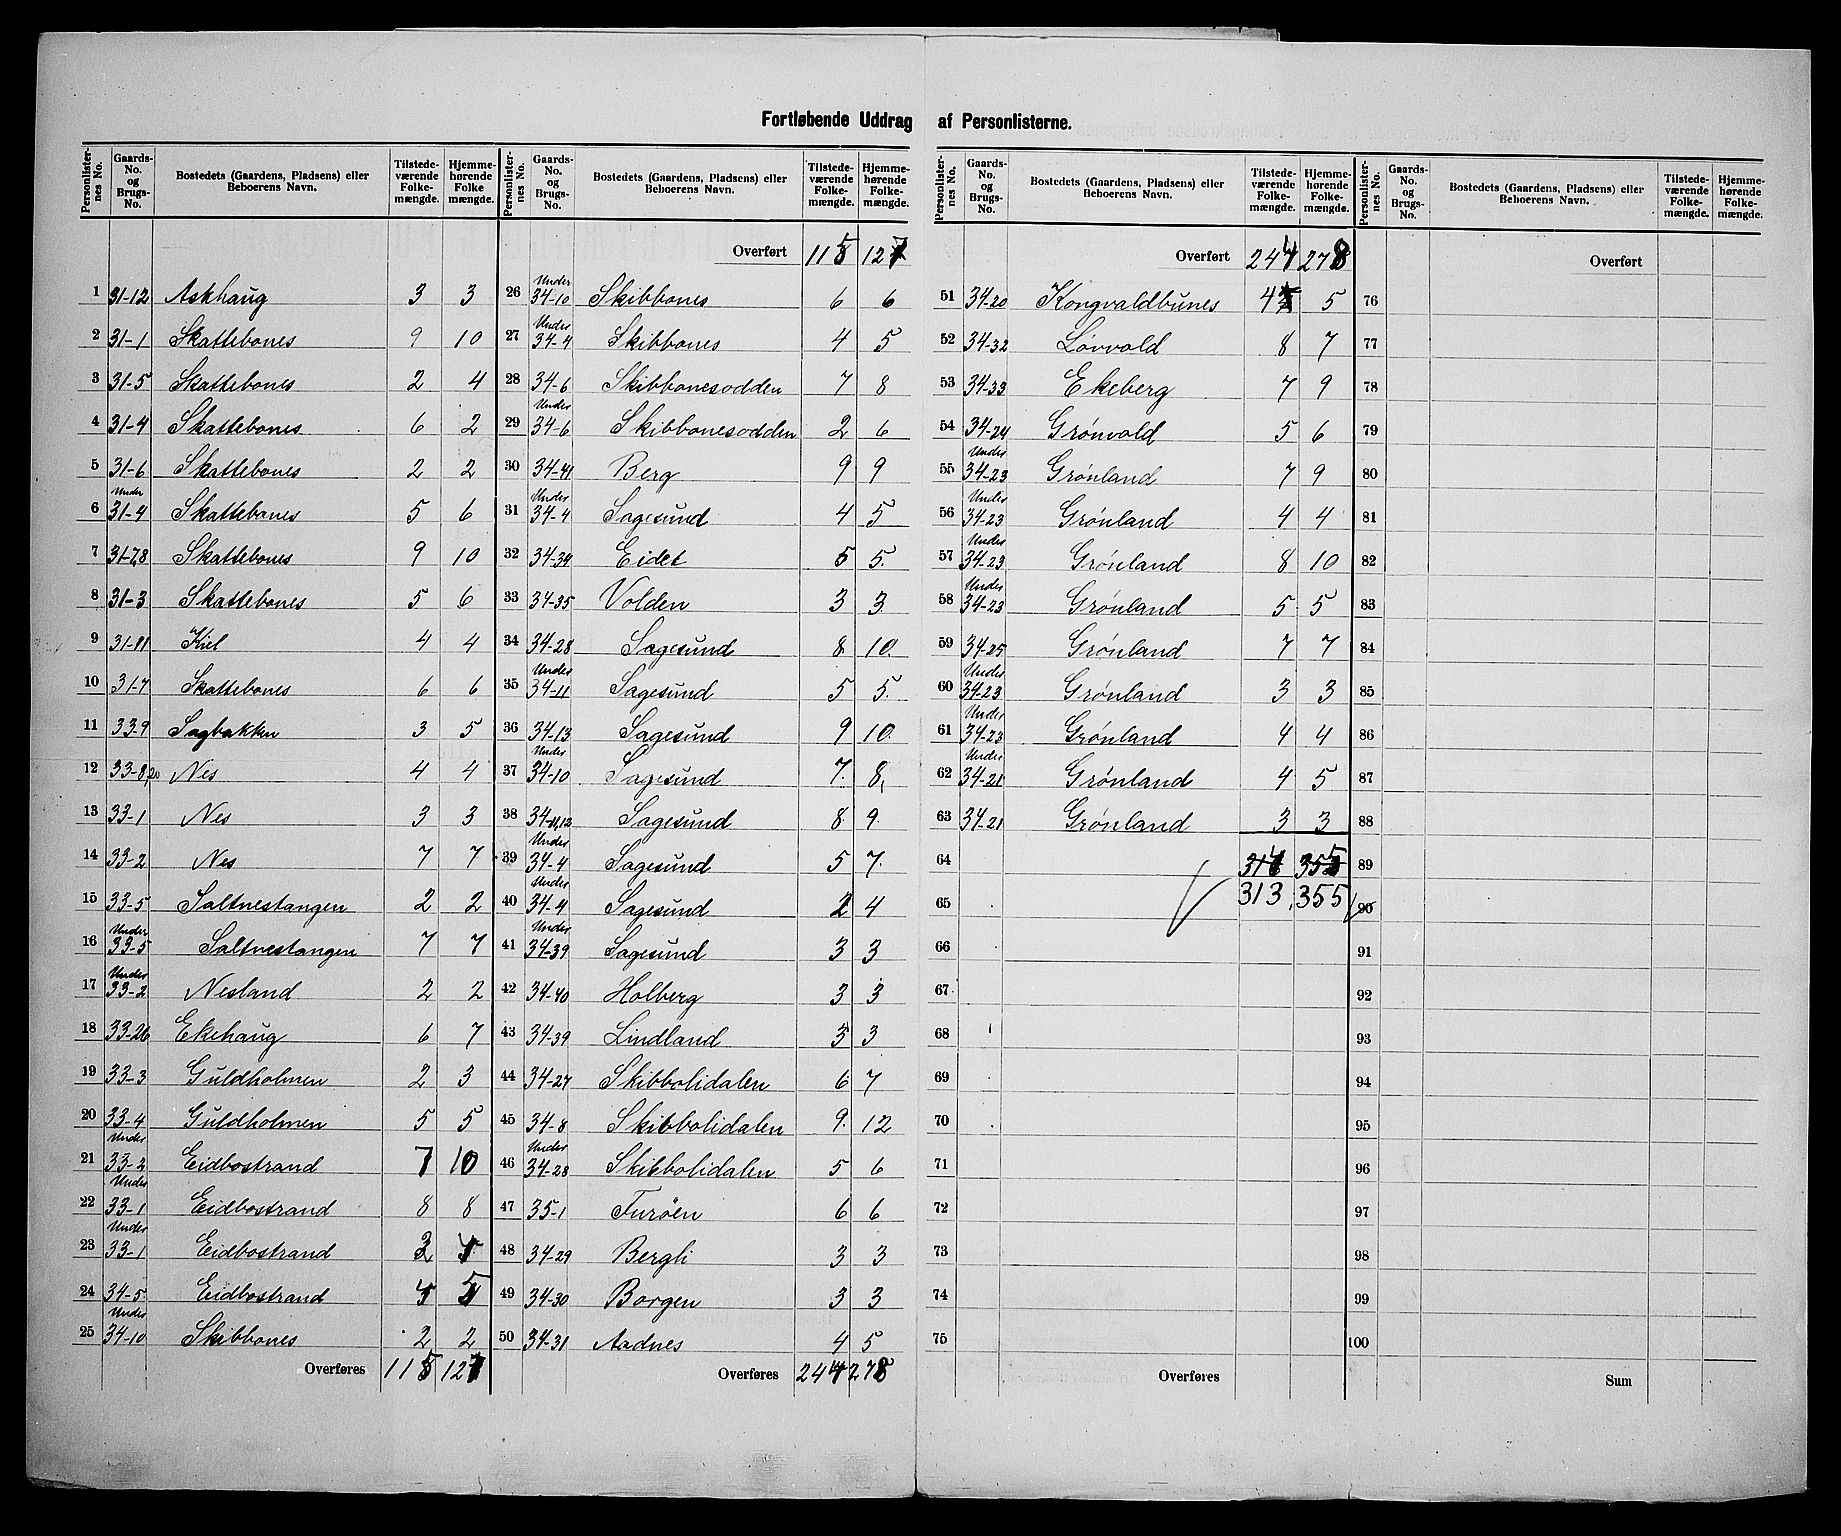 Fortløbende Uddrag af Personlisterne.
Personlister-nes No. Gaards-No. og Brugs-No. Bostedets (Gaardens, Pladsens) eller Beboerens Navn. Tilstede-værende Folke-mængde. Hjemme-hørende Folke mængde.
1 31-12 Askhaug 3 3
2 31-1 Skattebones 9 10
3 31-5 Skattebones 2 4
4 31-4 Skattebones 6 2
5 31-6 Skattebones 2 2
6 Under 31-4 Skattebones 5 6
7 31-7,8 Skattebones 9 10
8 31-3 Skattebones 5 6
9 31-11 Kiel 4 4
10 31-7 Skattebones 6 6
11 33-9 Sagbakken 3 5
12 33-8,20 Nes 4 4
13 33-1 Nes 3 3
14 33-2 Nes 7 7
15 33-5 Saltnestangen 2 2
16 Under 33-5 Saltnestangen 7 7
17 Under 33-2 Nesland 2 2
18 33-26 Ekehaug 6 7
19 33-3 Guldholmen 2 3
20 33-4 Guldholmen 5 5
21 Under 33-2 Eidbostrand 7 10
22 Under 33-1 Eidbostrand 8 8
23 Under 33-1 Eidbostrand
24 34-5 Eidbostrand 5
25 Under 34-10 Skibbones 2 2
Overføres 115 127
Personlister-nes No. Gaards-No. og Brugs-No. Bostedets (Gaardens, Pladsens) eller Beboerens Navn. Tilstede-værende Folke-mængde. Hjemme-hørende Folke-mængde.
Overført 115 127
26 Under 34-10 Skibbones 6 6
27 Under 34-4 Skibbones 4 5
28 34-6 Skibbonesodden 7 8
29 Under 34-6 Skibbonesodden 2 6
30 34-41 Berg 9 9
31 Under 34-4 Sagesund 4 5
32 34-34 Eidet 5 5.
33 34-35 Volden 3 3
34 34-28 Sagesund 8 10.
35 Under 34-11 Sagesund 5 5.
36 34-13 Sagesund 9 10.
37 Under 34-10 Sagesund 7. 8,
38 34-11,12 Sagesund 8 9.
39 Under 34-4 Sagesund 5 7.
40 Under 34-4 Sagesund 2 4
41 Under 34-39 Sagesund 3 3
42 34-40 Holberg 3 3
43 34-39 Lindland 3 3
44 34-27 Skibbolidalen 6 7
45 34-8 Skibbolidalen 9. 12
46 Under 34-28 Skibbolidalen 5 6
47 35-1 Furøen 6 6
48 34-29 Bergli 3 3
49 34-30 Borgen 3 3
50 34-31 Aadnes 4 5
Overføres 244 278
Personlister-nes No. Gaards-No. og Brugs-No. Bostedets (Gaardens, Pladsens) eller Beboerens Navn. Tilstede-værende Folke-mængde. Hjemme-hørende Folke-mængde.
Overført 244 278
51 34-20 Kongvaldbunes 4 5
52 34-32 Løvvold 8 7
53 34-33 Ekeberg 7 9
54 34-24 Grønvold 5 6
55 Under 34-23 Grønland 7 9
56 Under 34-23 Grønland 4 4
57 Under 34-23 Grønland 8 10
58 Under 34-23 Grønland 5 5
59 34-25 Grønland 7 7
60 Under 34-23 Grønland 3 3
61 Under 34-23 Grønland 4 4
62 Under 34-21 Grønland 4 5
63 34-21 Grønland 3 3
64 355
65 313 355
66
67
68
69
70
71
72
73
74
75
Overføres
Personlister-nes No. Gaards-No. og Brugs-No. Bostedets (Gaardens, Pladsens) eller Beboerens Navn. Tilstede-værende Folke-mængde. Hjemme-hørende Folke-mængde.
Overført
76
77
78
79
80
81
82
83
84
85
86
87
88
89
90
91
92
93
94
95
96
97
98
99
100
Sum